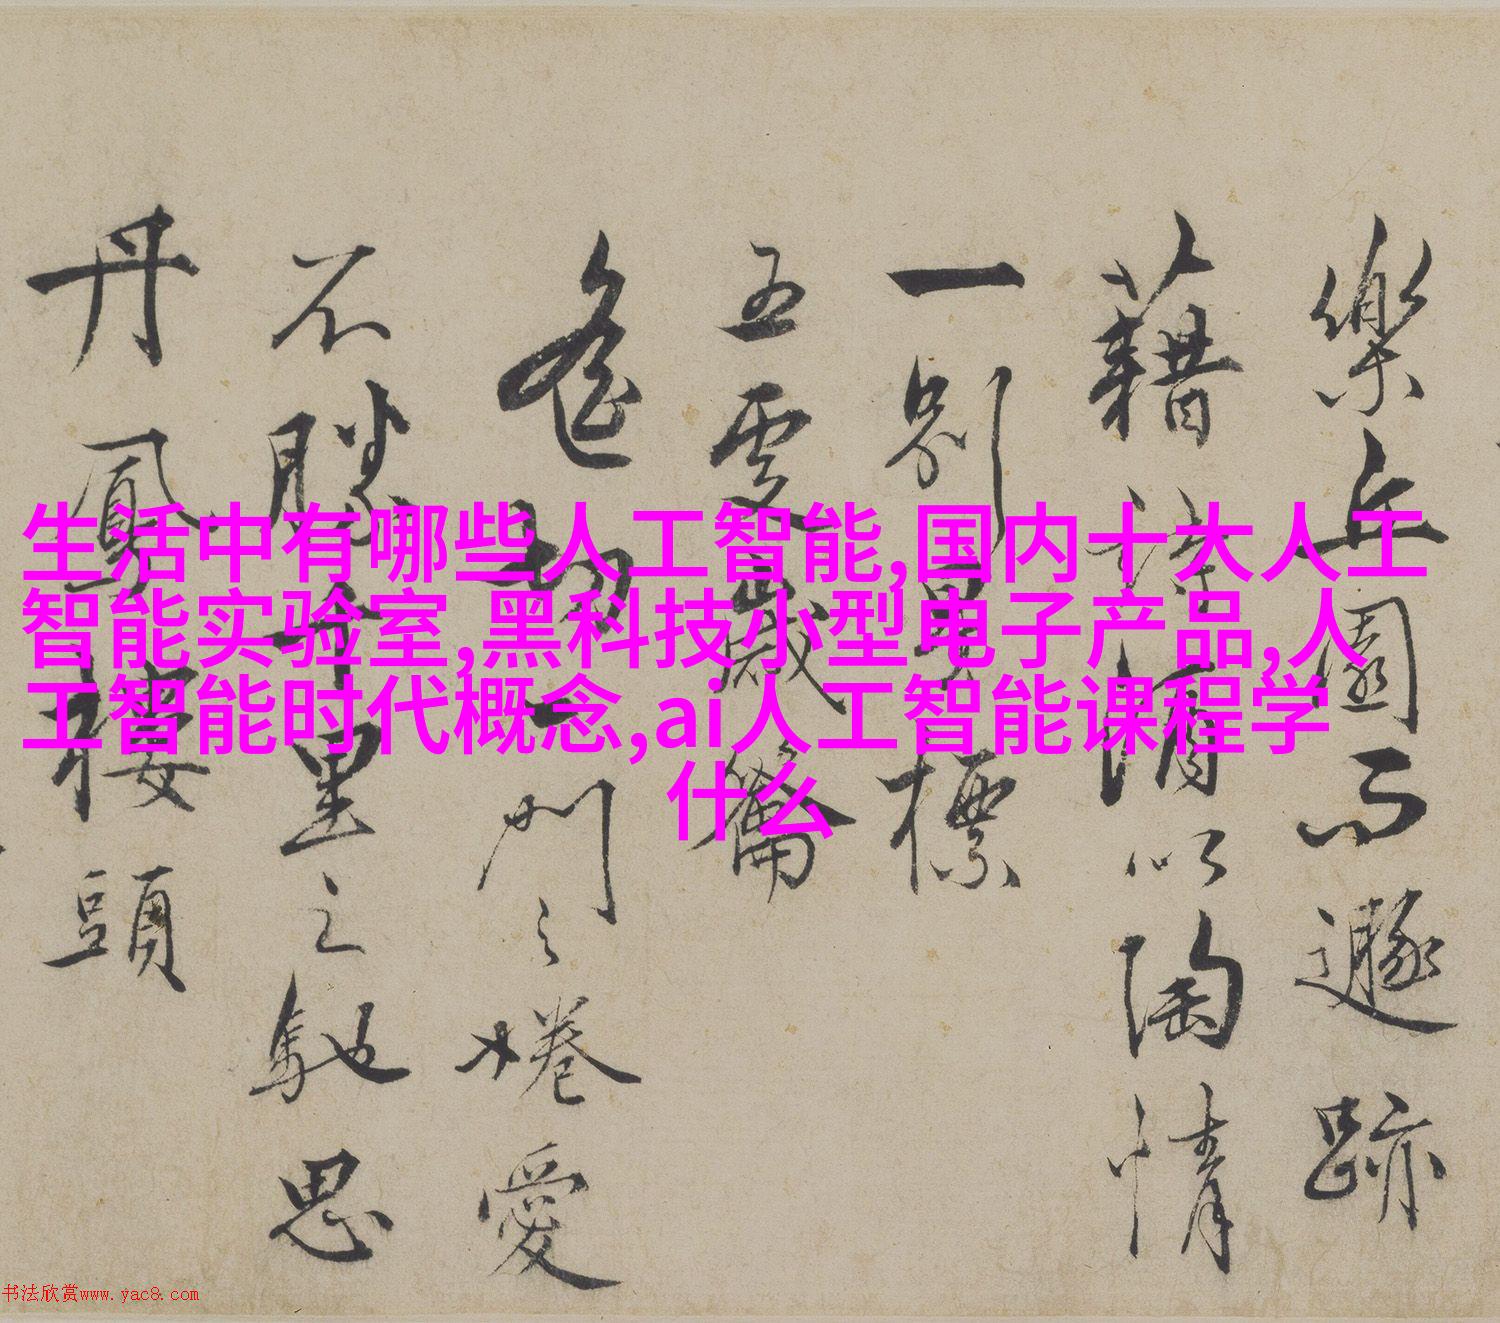 樂丘園而遯跡
藉詩酒以陶情
一別標
五更歲籥
切門之惓愛
不勝千里之馳思
丹鳳樓頭
生活中有哪些人工智能,国内十大人工
智能实验室,黑科技小型电子产品,人
工智能时代概念,ai人工智能课程学
什么
书法欣赏www.yac8.com